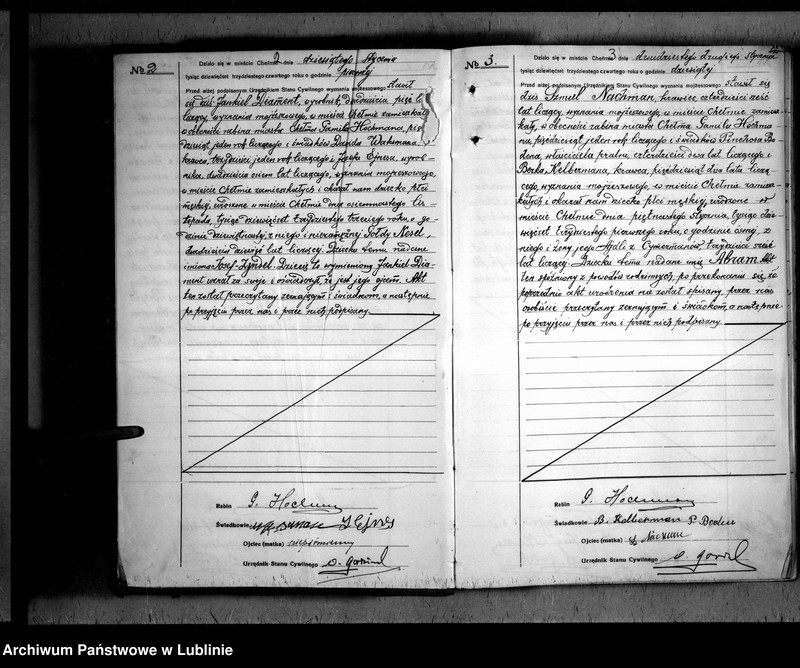 No 2
Działo się w mieście Chełmie dnia dziesiątego Stycznia
tysiąc dziewięćset trzydziestego czwartego roku o godzinie
Przed niżej podpisanym Urzędnikiem Stanu Cywilnego wyznania mojżeszowego stawił
się Jankiel Diament, wyrobnik, dwadzieścia pięć lat
liczący, wyznania mojżeszowego, w mieście Chełmie zamieszkały
w obecności rabina miasta Chełma Gamila Hochmana, pięć
dziesiąt jeden rok liczącego i świadków Dawida Waksmana
krawca, trzydzieści jeden rok liczącego i Joska Ejnesa, wyrob-
nika, dwadzieścia osiem lat liczącego, wyznania mojżeszowego,
w mieście Chełmie zamieszkałych i okazał nam dziecko płci
męskiej, urodzone w mieście Chełmie dnia osiemnastego Lis-
topada, tysiąc dziewięćset trzydziestego trzeciego roku, o go-
dzinie dziewiętnastej, z niego i niezamężnej Gołdy Nesel,
dwadzieścia dziesięć lat liczącej. Dziecku temu nadano
imiona Josef-Lejzer. Dziecię to wymieniony Jankiel Dia-
ment uznał za swoje i oświadczył, że jest jego ojcem. Akt
ten został przeczytany zeznającym i świadkom, a następnie
po przyjęciu przez nas i przez nich podpisany.
Rabin G. Hochman
Świadkowie J Ejnes
Ojciec (matka) niepiśmienny
Urzędnik Stanu Cywilnego
No 3.
Działo się w mieście Chełmie dnia dwudziestego drugiego Stycznia
tysiąc dziewięćset trzydziestego czwartego roku o godzinie dziesiątej
Przed niżej podpisanym Urzędnikiem Stanu Cywilnego wyznania mojżeszowego stawił się
Szmul Nachman, krawiec, czterdzieści sześć
lat liczący, wyznania mojżeszowego, w mieście Chełmie zamiesz-
kały, w obecności rabina miasta Chełma Gamila Hochma-
na, pięćdziesiąt jeden rok liczącego i świadków Pinchosa Bo-
dena, właściciela pralni, czterdzieści dwa lat liczącego i
Berka Kelbermana, krawca, pięćdziesiąt dwa lata liczą-
cego, wyznania mojżeszowego, w mieście Chełmie zamiesz-
kałych i okazał nam dziecko płci męskiej, urodzone w
mieście Chełmie dnia piętnastego Stycznia, tysiąc dzie-
więćset trzydziestego pierwszego roku, o godzinie ósmej, z
niego i żony jego z Cymermanów, trzydzieści sześć
lat liczącej. Dziecku temu nadano imię Abram. Akt
ten spóźniony z powodów rodzinnych, po przekonaniu się, że
poprzednio akt urodzenia nie został spisany, przez nas
osobiście przeczytany zeznającym i świadkom, a następnie
po przyjęciu przez nas i przez nich podpisany.
Rabin G. Hochman
Świadkowie B. Kelberman P. Boden
Ojciec (matka)
Urzędnik Stanu Cywilnego
Archiwum Państwowe w Lublinie